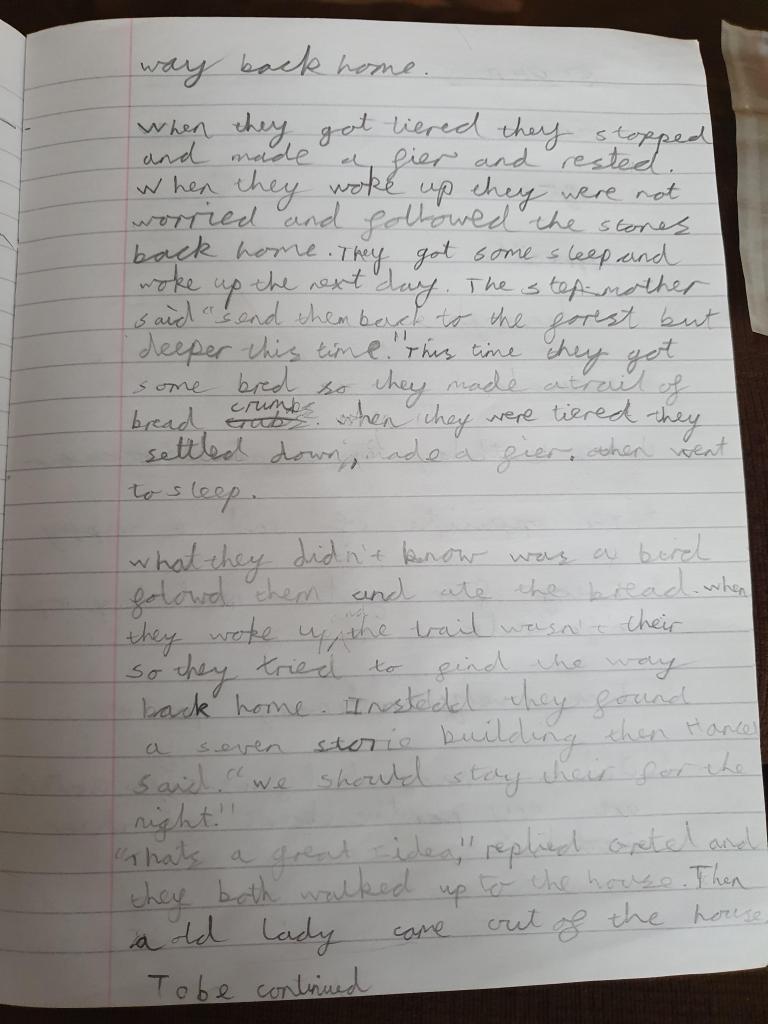 way back home.
When they got tiered they stopped
and made a fier and rested.
When they woke up they were not
worried and followed the stones
back home. They got some sleep and
woke up the next day. The step-mother
said "send them back to the forest but
deeper this time." This time they got
some bred so they made a trail of
bread crumbs. when they were tiered they
settled down, made a fier, then went
to sleep.
what they didn't know was a bird
folowd them and ate the bread. when
they woke up, the trail wasn't their
so they tried to find the way
back home. Instedd they found
a seven storie building then Hancel
said. "we should stay their for the
night."
"Thats a great idea," replied Gretel and
they both walked up to the house. Then
a old lady came out of the house
To be continued